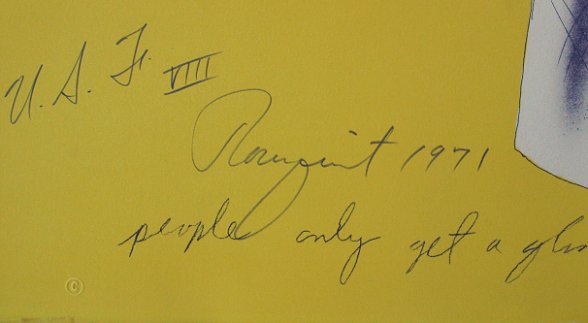 U.S.F. VIIII
Rosenquist 1971
people only get a
©